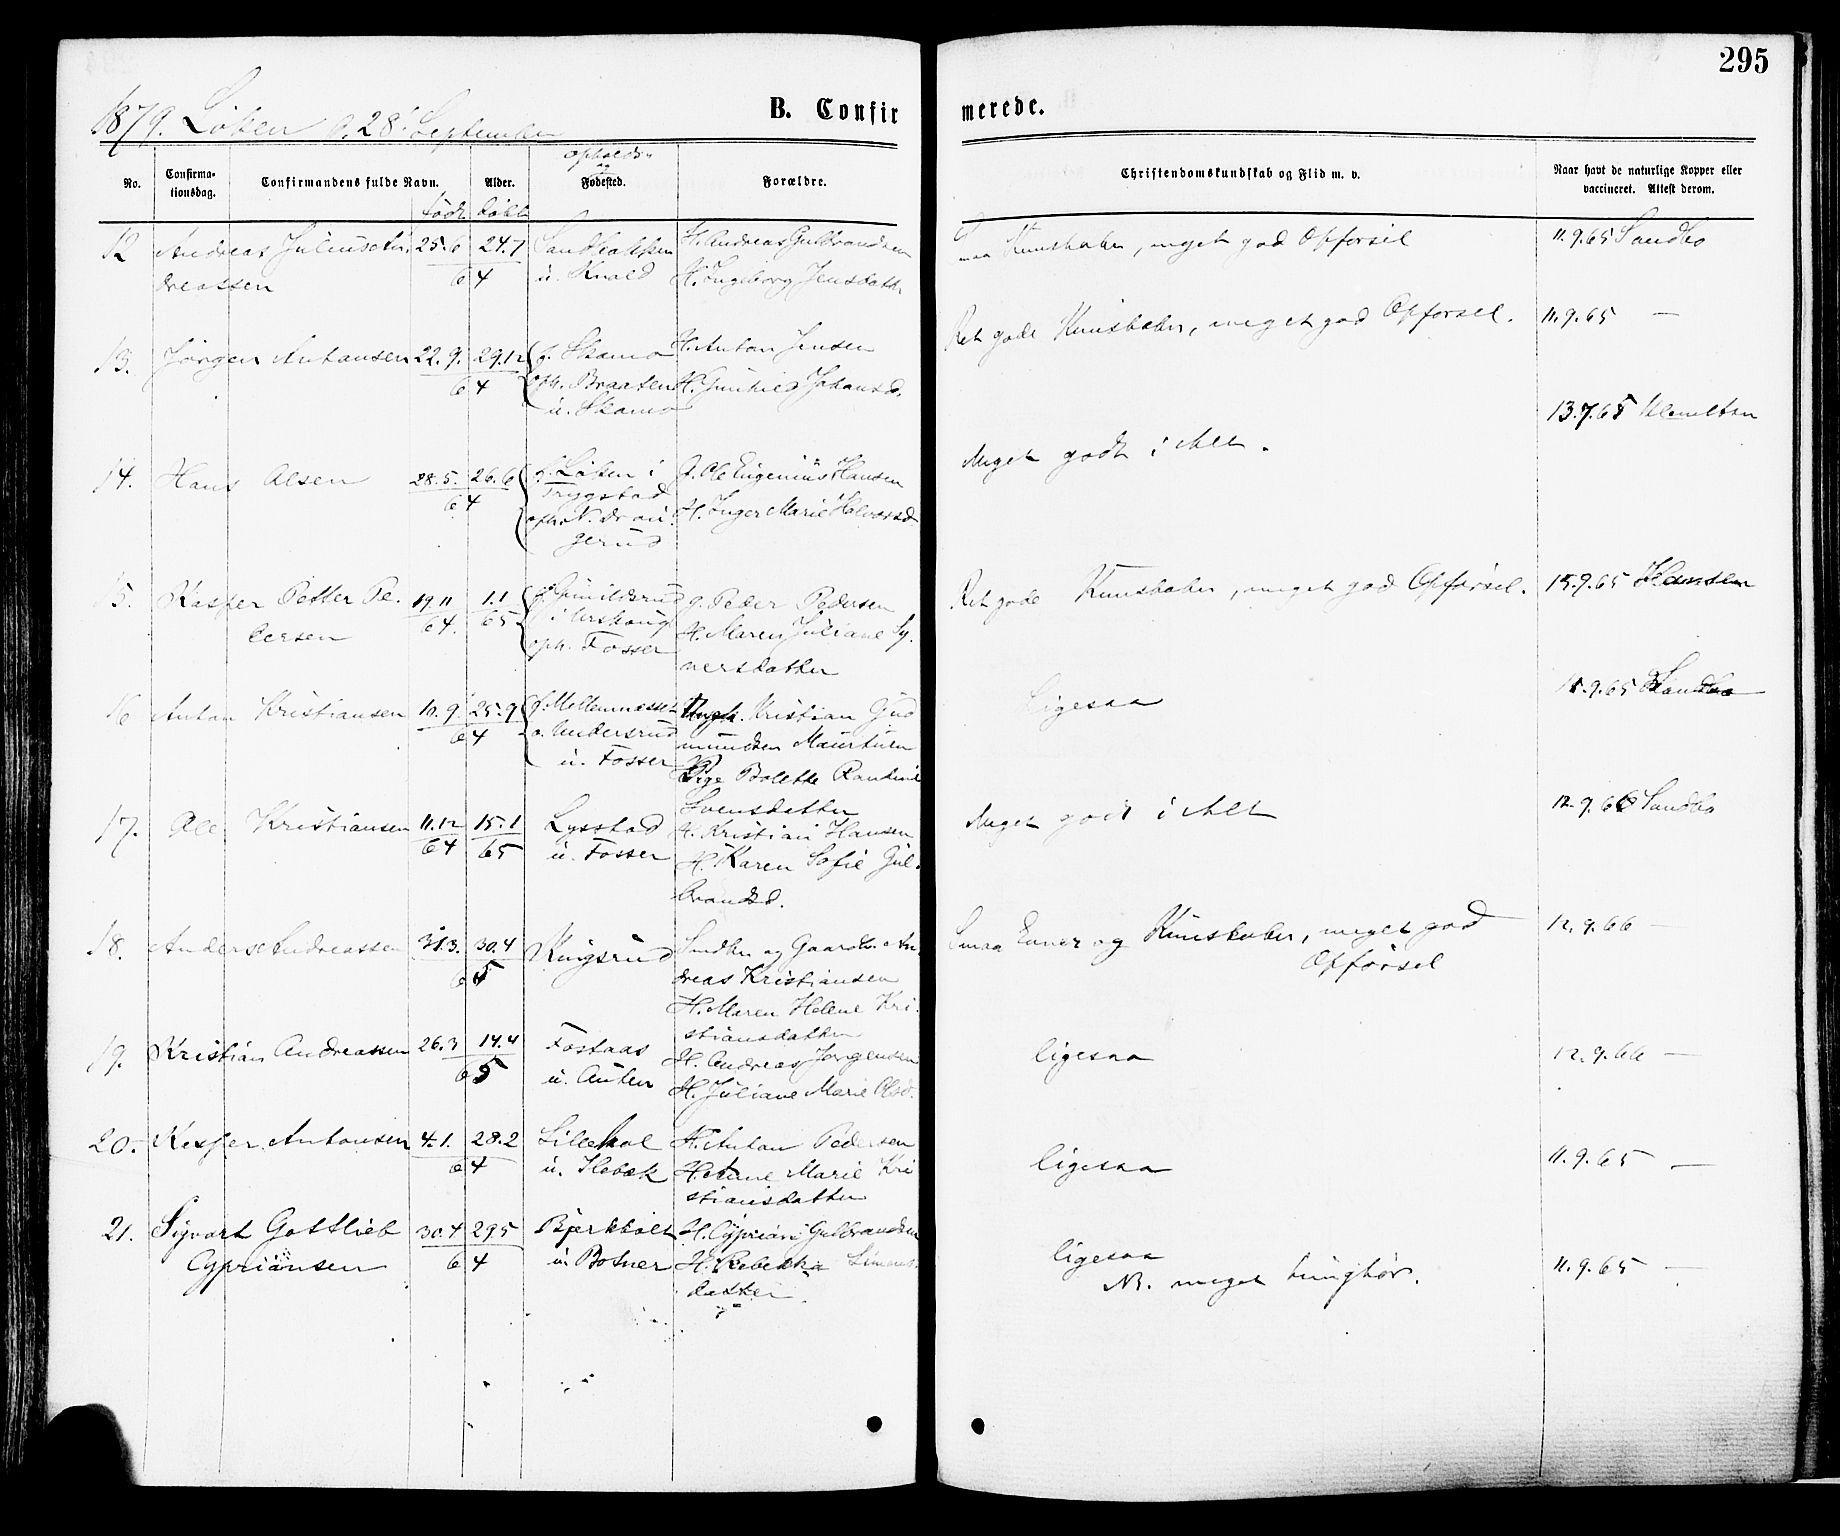 295
1879. Løken d. 28' September
B. Confir
merede.
No.
Confirma-
tionsdag.
Confirmandens fulde Navn.
Alder.
Opholds-
og
Fødested.
Forældre.
Christendomskundskab og Flid m. v.
Naar havt de naturlige Kopper eller
vaccineret. Attest derom.
født døbt
12 Andreas Julius An
dreassen
25.6 24.7
64
u. Knald
H. Andreas Gulbrandsen
H. Ingeborg Jensdatter
Smaa Kunskaber, meget god Opførsel
11.9.65 Sandbo
13. Jørgen Antonsen
22.9. 29.12
64
f. Skamo
oph. Braaten
u. Skamo
H. Anton Jensen
H. Gunhild Johansd.
Ret gode Kunskaber, meget god Opførsel.
11.9.65 —
14. Hans Olsen
28.5. 26.6
64
f. Løken i
Trygstad
oph. N. Drau
gerud
G. Ole Eugenius Hansen
H. Inger Marie Halvorsd
Meget godt i Alt.
13.7.65
15. Kasper Petter Pe.
dersen
19.11 1.1
64. 65
i Urskoug
oph. Fosser
G. Peder Pedersen
H. Maren Juliane Sy.
versdatter
Ret gode Kunskaber, meget god Opførsel.
15.9.65 Hansen
16 Anton Kristiansen
10.9. 25.9
64
f. Mellemnesset
o. Andersrud
u. Fosser
Ungk. Kristian Gud
mundsen Maurtuen
Pige Bolette
Svensdatter
Ligesaa
11.9.65 Sandbo
17. Ole Kristiansen
11.12 15.1
64 65
Lysstad
u. Fosser
H. Kristian Hansen
H. Karen Sofie Gul.
brandsd.
Meget godt i Alt
12.9.66 Sandbo
18. Anders Andreassen
31.3. 30.4
65
Kingsrud
Smed og Gaardbr. An
dreas Kristiansen
H. Maren Helene Kri.
stiansdatter
Smaa Evner og Kunskaber, meget god
Opførsel
12.9.66 —
19. Kristian Andreassen
26.3 14.4
65
Fostaas
u. Auten
H. Andreas Jørgensen
H. Juliane Marie Olsd.
ligesaa
12.9.66 —
20. Kasper Antonsen
4.1. 28.2
64
Lillehol
u. Hebæk
H. Anton Pedersen
H. Anne Marie Kri
stiansdatter
ligesaa
11.9.65 —
21. Sigvart Gottlieb
Cypriansen
30.4 29.5
64
Bjerkholt
u. Botner
H. Cyprian Gulbrandsen
H. Rebekka Simens
datter
ligesaa
NB. meget tunghør.
11.9.65 —